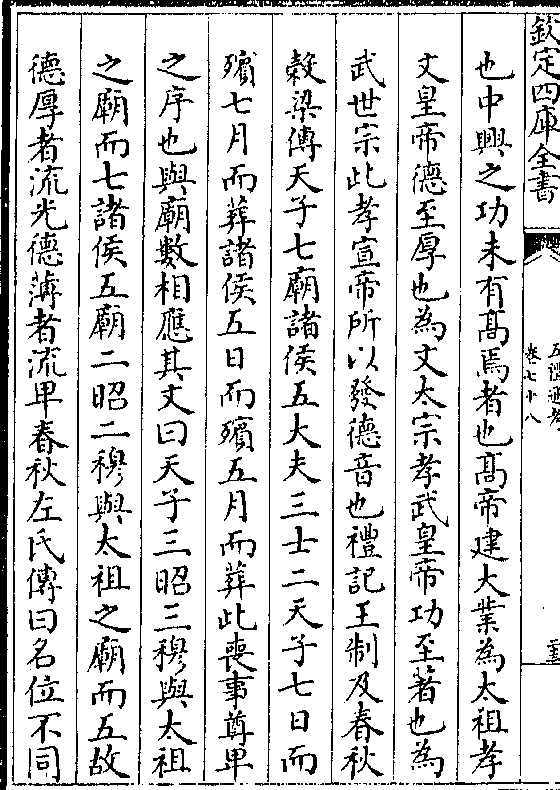 欽定四庫全書
五禮通考
卷七十八
也中興之功未有髙焉者也髙帝建大業為太祖孝
文皇帝德至厚也為文太宗孝武皇帝功至著也為
武世宗此孝宣帝所以發德音也禮記王制及春秋
榖梁傳天子七廟諸侯五大夫三士二天子七日而
殯七月而葬諸侯五日而殯五月而葬此喪事尊卑
之序也與廟數相應其文曰天子三昭三穆與太祖
之廟而七諸侯五廟二昭二穆與太祖之廟而五故
德厚者流光德薄者流卑春秋左氏傳曰名位不同